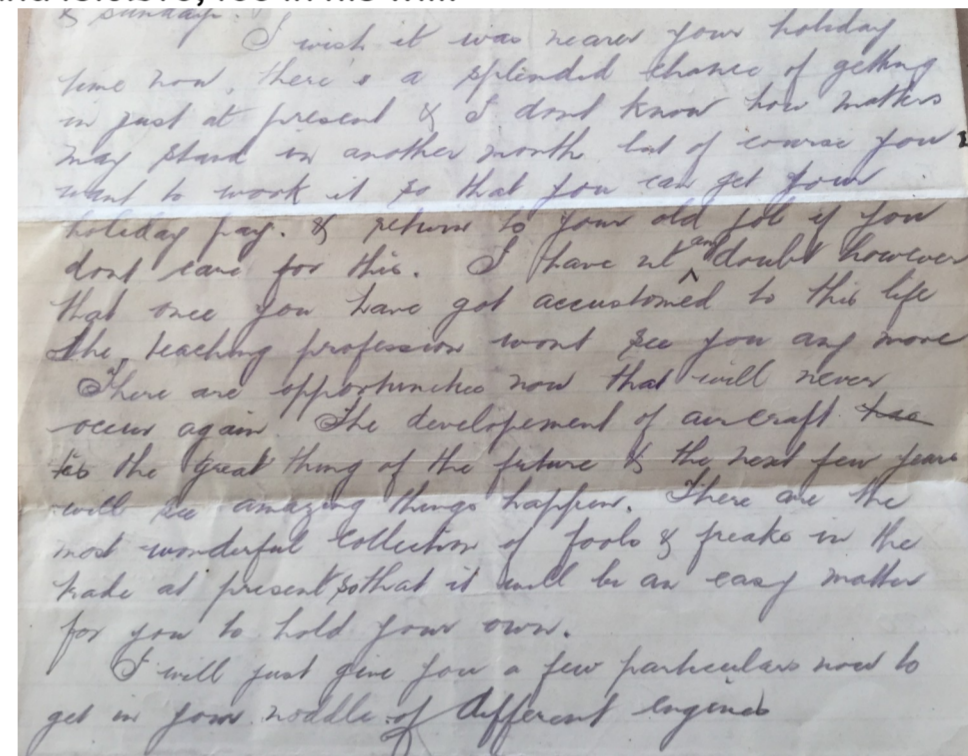 & Sunday.
I wish it was nearer your holiday
time now, there's a splendid chance of getting
in just at present & I dont know how matters
may stand in another month but of course you
want to work it so that you can get your
holiday pay. & return to your old job if you
dont care for this. I have not any doubt however
that once you have got accustomed to this life
the teaching profession wont see you any more
There are opportunities now that will never
occur again The developement of aircraft
is the great thing of the future & the next few years
will see amazing things happen. There are the
most wonderful collection of fools & freaks in the
trade at present so that it will be an easy matter
for you to hold your own.
I will just give you a few particulars now to
get in your noddle of different engines